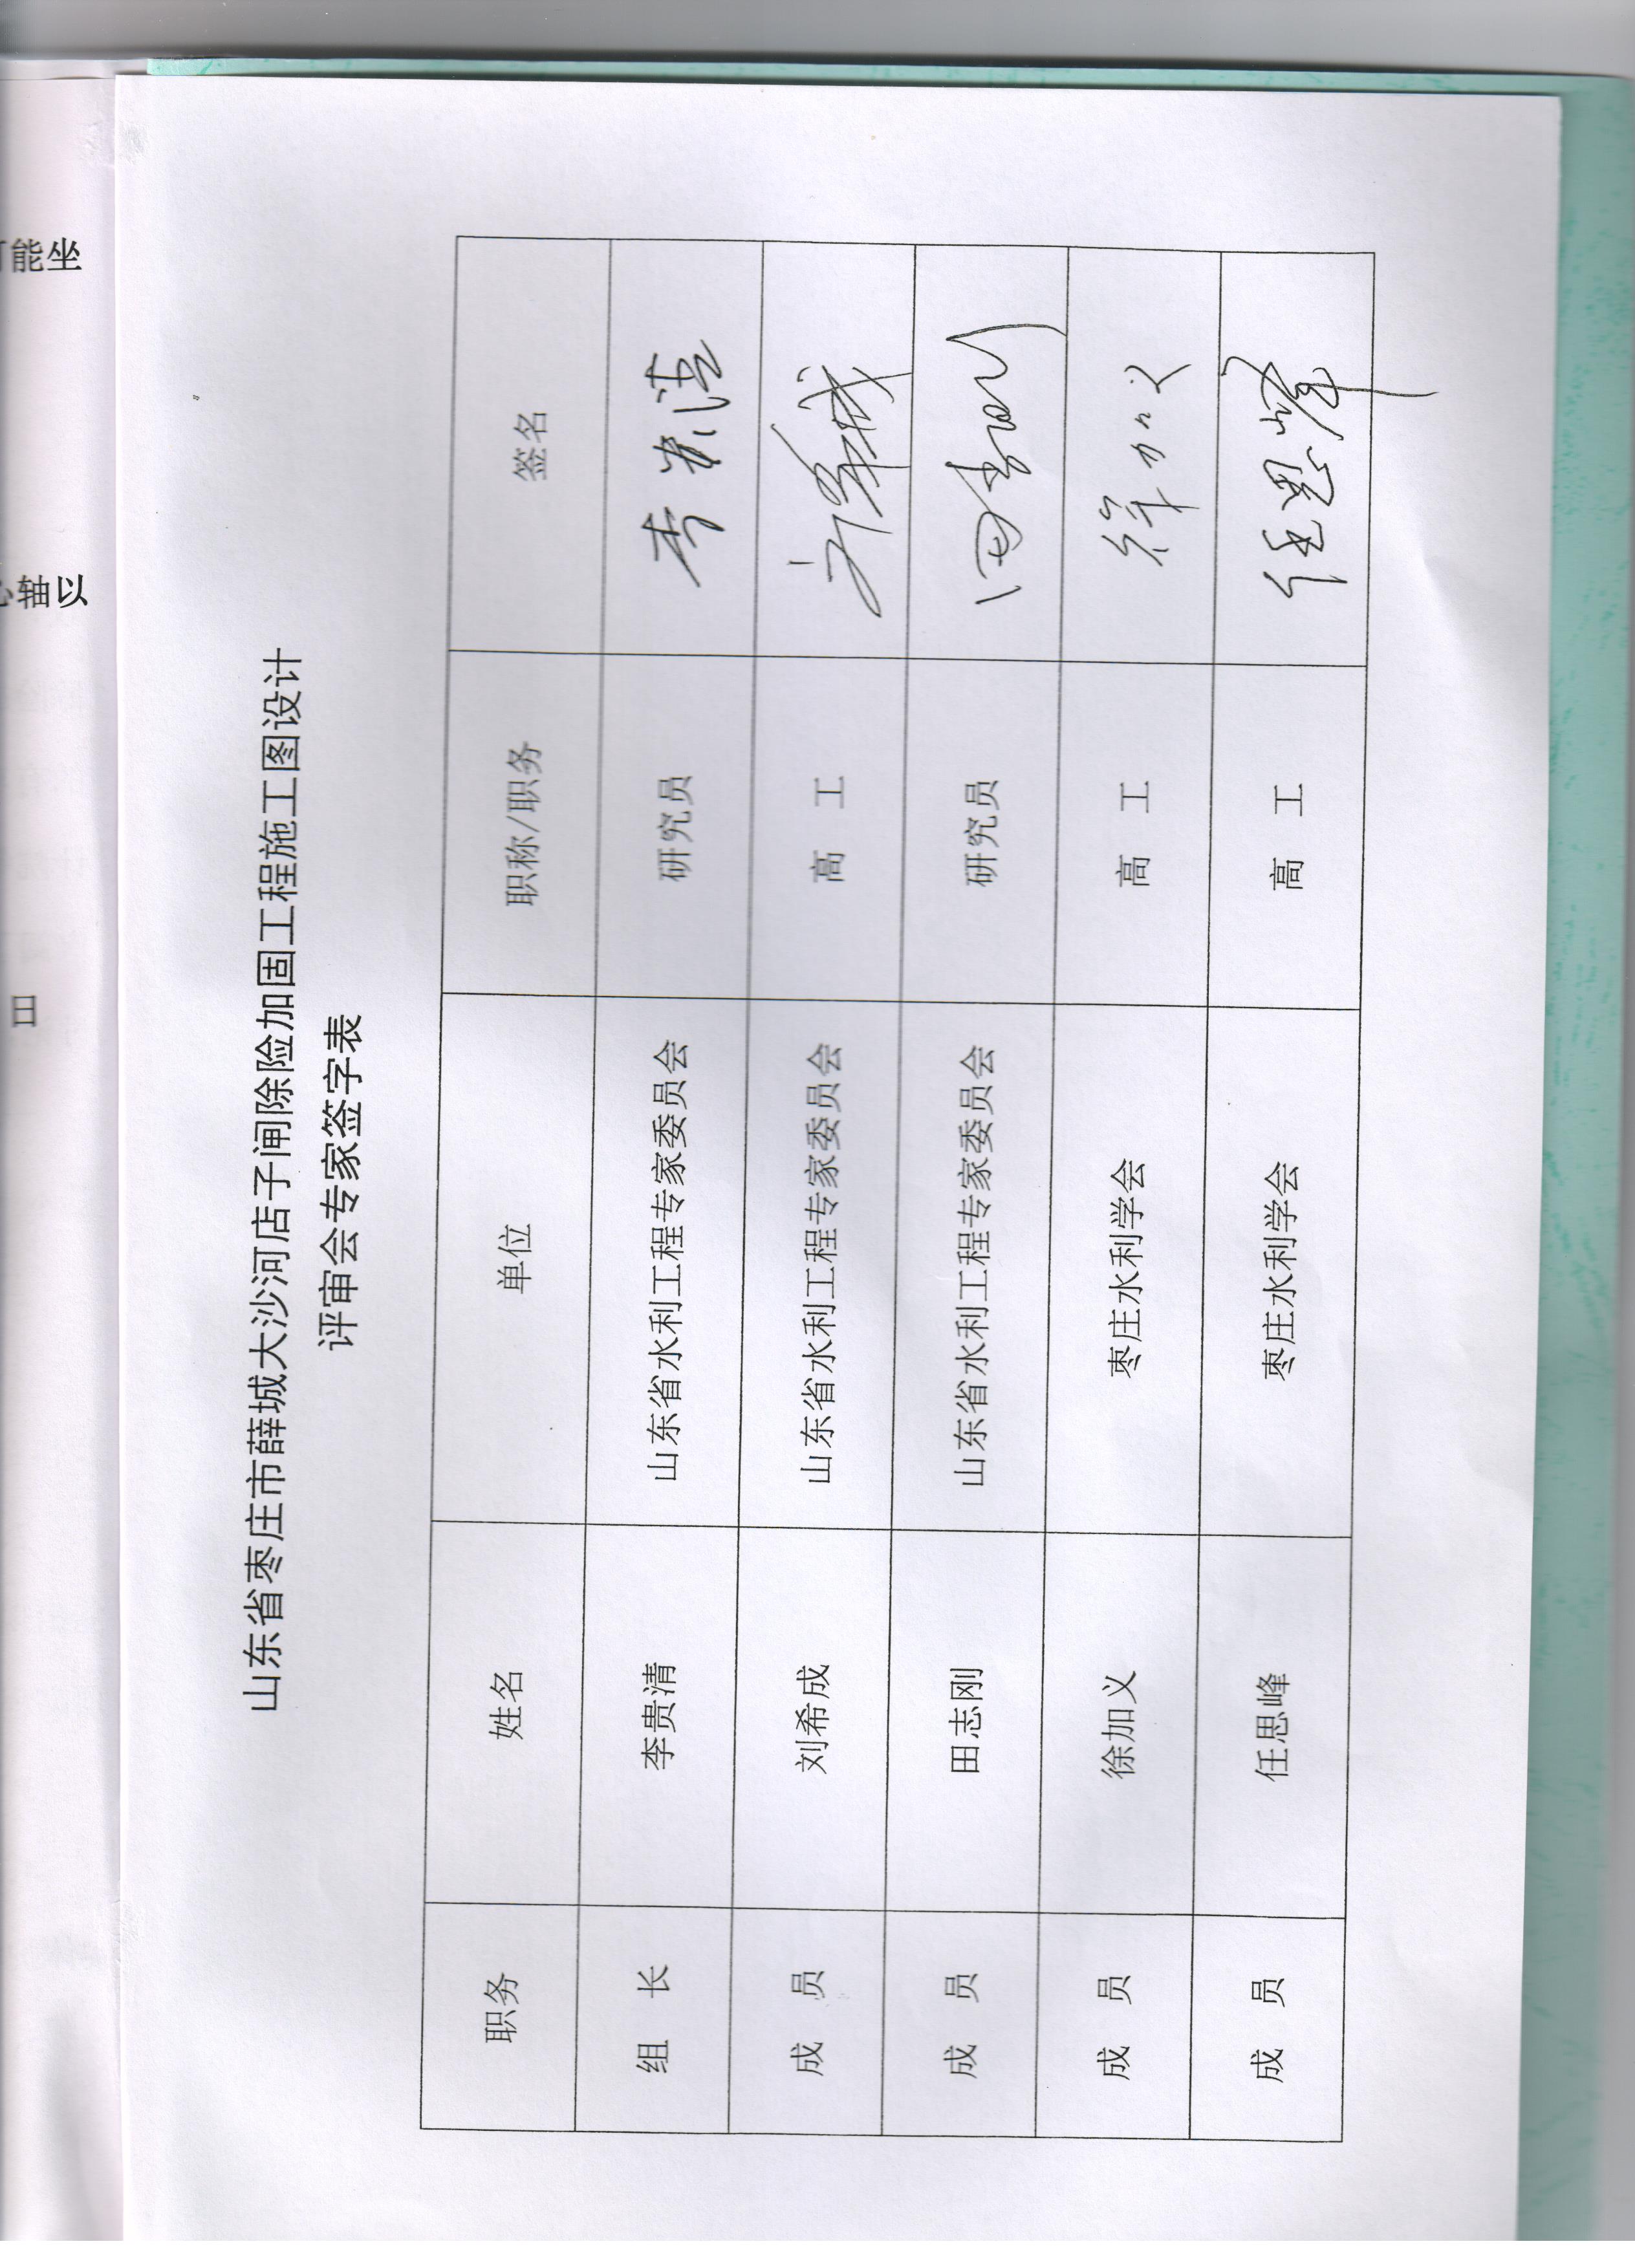 山东省枣庄市薛城大沙河店子闸除险加固工程施工图设计
评审会专家签字表
职务 姓名 单位 职称/职务 签名
组 长 李贵清 山东省水利工程专家委员会 研究员 李贵清
成 员 刘希成 山东省水利工程专家委员会 高 工 刘希成
成 员 田志刚 山东省水利工程专家委员会 研究员 田志刚
成 员 徐加义 枣庄水利学会 高 工 徐加义
成 员 任思峰 枣庄水利学会 高 工 任思峰
能坐
轴以
日